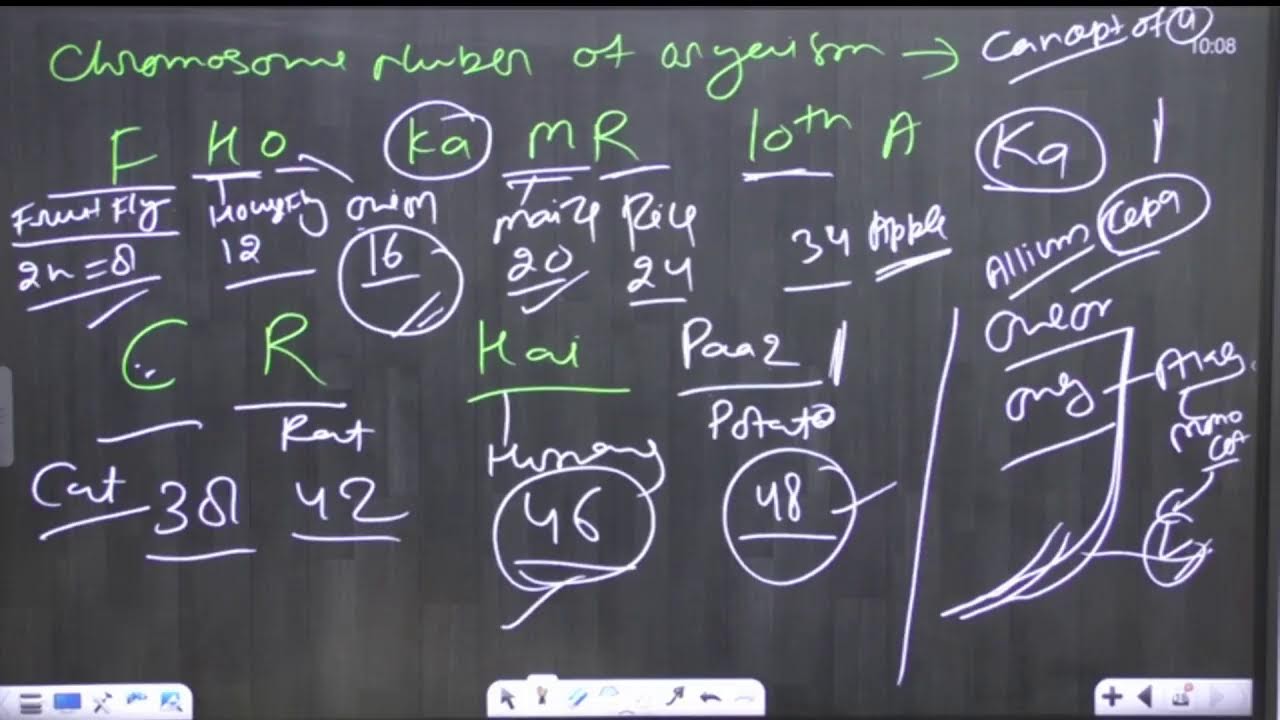 Chromosome Number of organism → Concept of 4
10:08
F Ho Ka M R 10th A Ka
Fruit Fly Housefly onion Maize Rice 34 Apple Allium Cepa
2n = 8 12 16 20 24
onion
C R Hai Paa2
only
Rat Humans Potato
mono cot
Cat 38 42 46 48